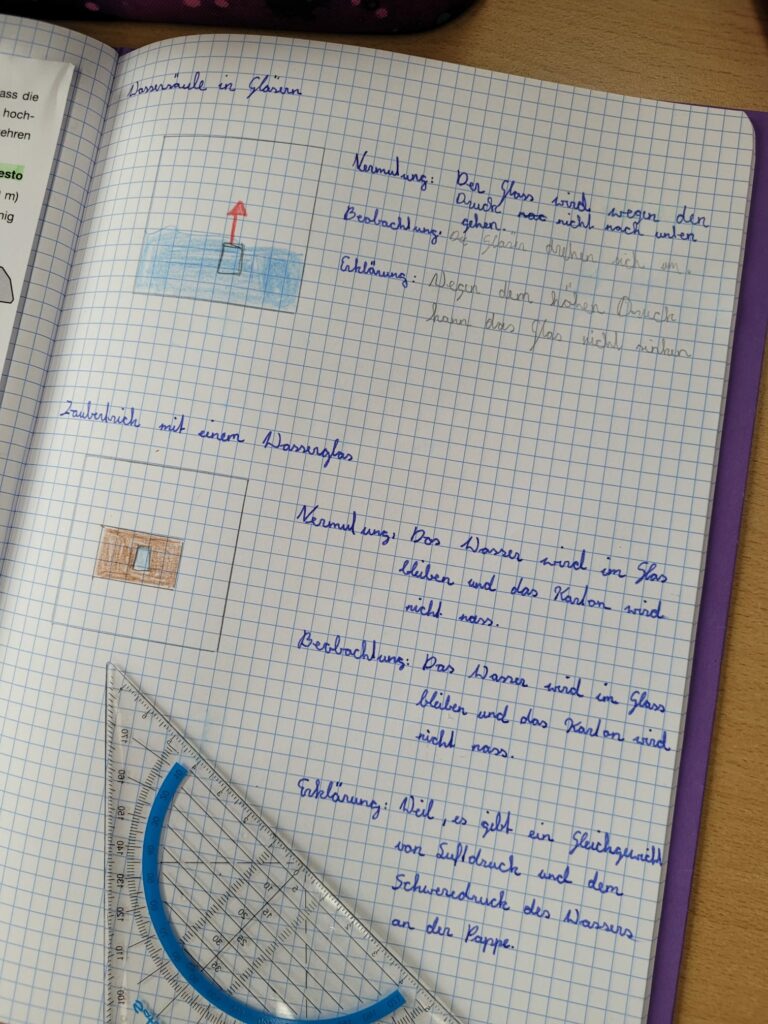 ass die
hoch-
ehren
esto
m)
nig
Wassersäule in Gläsern
Vermutung: Der Glass wird wegen den
Druck nicht nach unten
gehen.
Beobachtung. Gläser drehen sich um.
Erklärung: Wegen dem hohen Druck
kann das Glas nicht sinken
Zaubertrick mit einem Wasserglas
Vermutung. Das Wasser wird im Glas
bleiben und das Karton wird
nicht nass.
Beobachtung: Das Wasser wird im Glass
bleiben und das Karton wird
nicht nass.
Erklärung: Weil, es gibt ein Gleichgewicht
von Luftdruck und dem
Schweredruck des Wassers
an der Pappe.